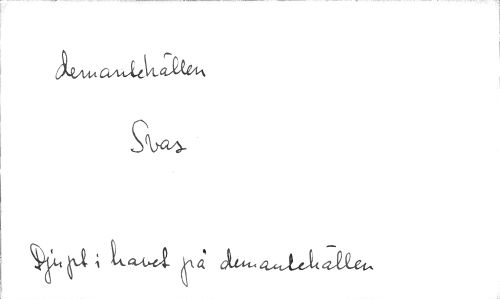 demantehällen
Svas
Djupt i havet på demantehällen